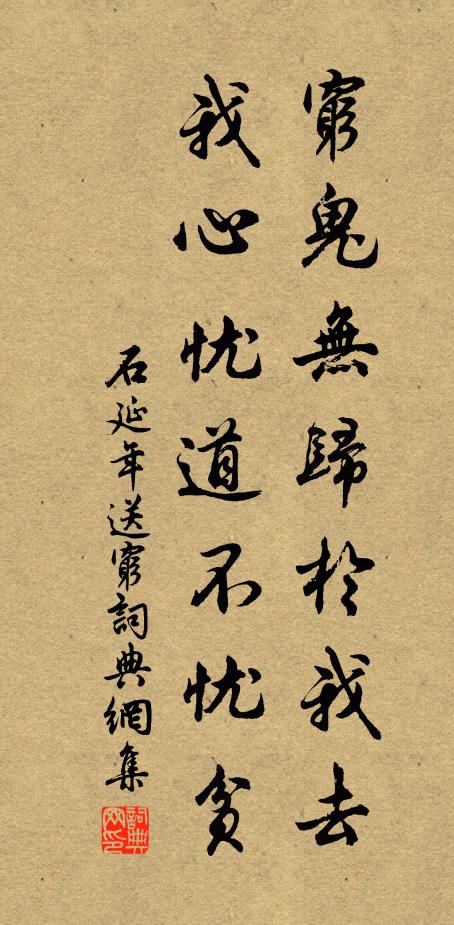 窮鬼無歸於我去
我心忧道不忧貧
石延年送窮詞典網集
詞典网印